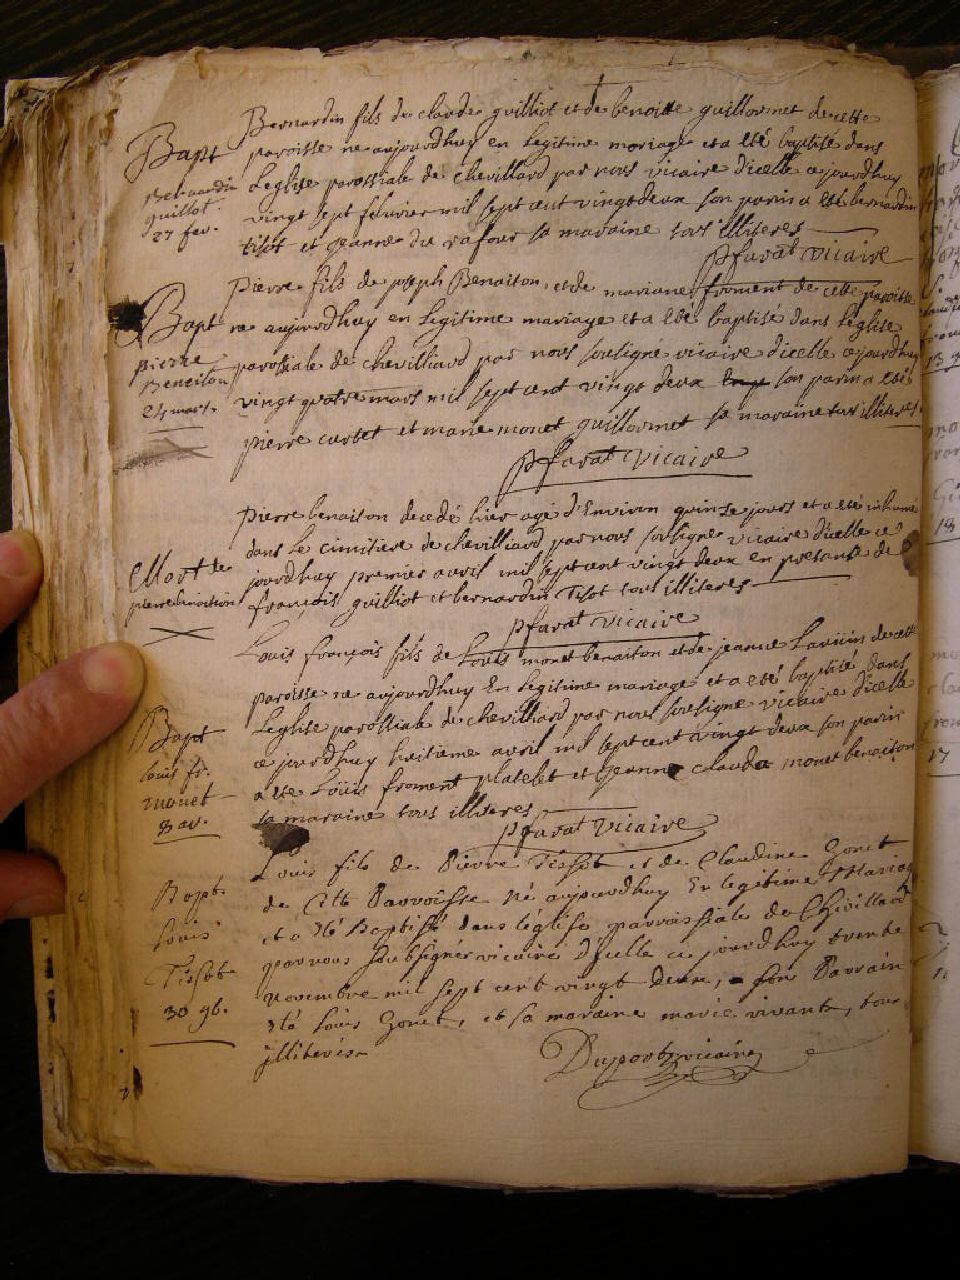 Bapt
Bernardin
guillot
27 fev.
Bernardin fils du claude guilliot et de benoitte guillormet de cette
paroisse ne aujourdhuy en Legitime mariage et a eté baptisé dans
Leglise parossiale de chevillard par nous vicaire dicelle ce jourdhuy
vingt sept fevrier mil sept cent vingt deux son parin a eté bernardin
tisot et jeanne du rafour sa maraine tous illiteres
pfavat vicaire
Bapt
pierre
Benoiton
24 mars.
Pierre fils de joseph Benoiton, et de mariane froment de cette paroisse
ne aujourdhuy en Legitime mariage et a eté baptisé dans Leglise
parossiale de chevilliard par nous sousigné vicaire dicelle ce jourdhuy
vingt quatre mars mil sept cent vingt deux son parin a eté
pierre curtet et marie monet guillormet sa maraine tous illiteres.
pfavat vicaire
Mort de
pierre benoition
pierre benoiton decedé hier agé d'Environ quinze jours et a eté inhumé
dans Le cimitiere de chevilliard par nous sousigne vicaire dicelle ce
jourdhuy premier avril mil sept cent vingt deux en presence de
françois guilliot et bernardin Tisot tous illiteres
pfavat vicaire
Bapt
Louis fr.
monet
8 av.
Louis françois fils de Louis monet benoiton et de jeanne de cett
paroisse ne aujourdhuy En Legitime mariage et a eté baptisé dans
Leglise parossiale de chevilliard par nous sousigne vicaire dicelle
ce jourdhuy huitieme avril mil sept cent vingt deux son parin
a ete Loüis froment platelet et jeanne clauda monet benoiton
sa maraine tous illiteres
pfavat vicaire
Bapt
Louis
Tissot
30 9b.
Louis fils de Pierre Tissot et de Claudine Gonet
de Cette Parroisse Né aujourdhuy En legitime Mariag
et a eté Baptisé dans léglise parroissiale de Chevillard
par nous soubsigné vicaire d'icelle ce jourdhuy trente
novembre mil sept cent vingt deux, son Parrain
eté Louis Gonet, et sa maraine marie vivante, tous
jlliterés
Duport vicaire